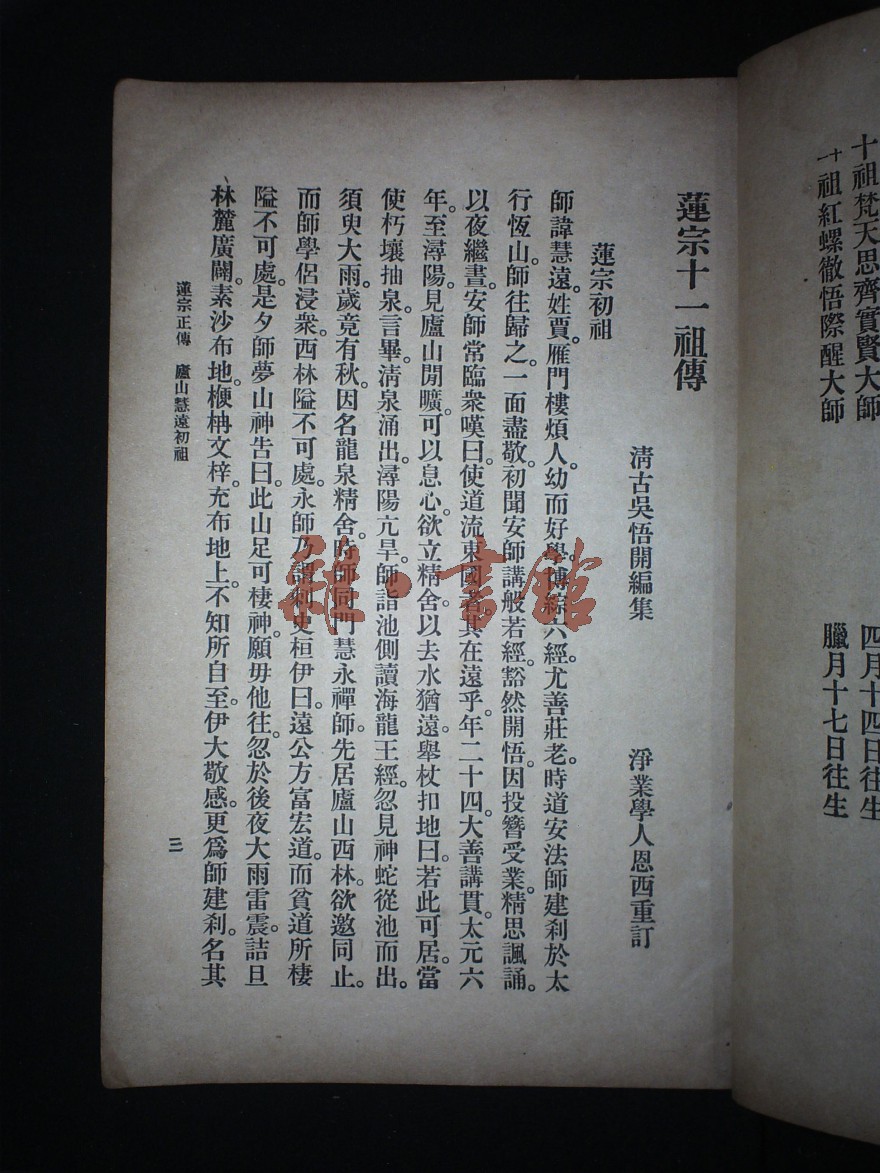 十祖梵天思齊實賢大師
四月十四日往生
十一祖紅螺徹悟際醒大師
臘月十七日往生
蓮宗十一祖傳
清古吳悟開編集
淨業學人恩西重訂
蓮宗初祖
師諱慧遠。姓賈。雁門樓煩人。幼而好學。博綜六經。尤善莊老。時道安法師建刹於太
行恆山。師往歸之。一面盡敬。初聞安師講般若經。豁然開悟。因投簪受業。精思諷誦。
以夜繼晝。安師常臨衆嘆曰。使道流東國者。其在遠乎。年二十四。大善講貫。太元六
年。至潯陽。見廬山閒曠。可以息心。欲立精舍。以去水猶遠。舉杖扣地曰。若此可居。當
使朽壤抽泉。言畢。清泉涌出。潯陽亢旱。師詣池側讀海龍王經。忽見神蛇從池而出。
須臾大雨。歲竟有秋。因名龍泉精舍。時師同門慧永禪師。先居廬山西林。欲邀同止。
而師學侶浸衆。西林隘不可處。永師乃謂刺史桓伊曰。遠公方富宏道。而貧道所棲
隘不可處。是夕師夢山神告曰。此山足可棲神。願毋他往。忽於後夜大雨雷震。詰旦
林麓廣闢。素沙布地。楩枏文梓。充布地上。不知所自至。伊大敬感。更爲師建刹。名其
蓮宗正傳 廬山慧遠初祖
三
雅〇書館